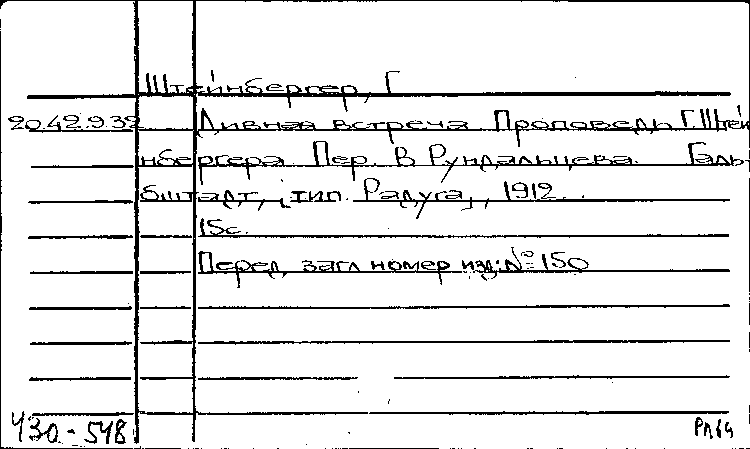 Штейнбергер, Г
20.42.9.32 Дивная встреча Проповедь Г. Штей
нбергера Пер. В Рундальцева. Галь-
бштадт, [тип. Радуга], 1912.
15с.
Перед. загл номер изд: № 150
430-548 РЛ64